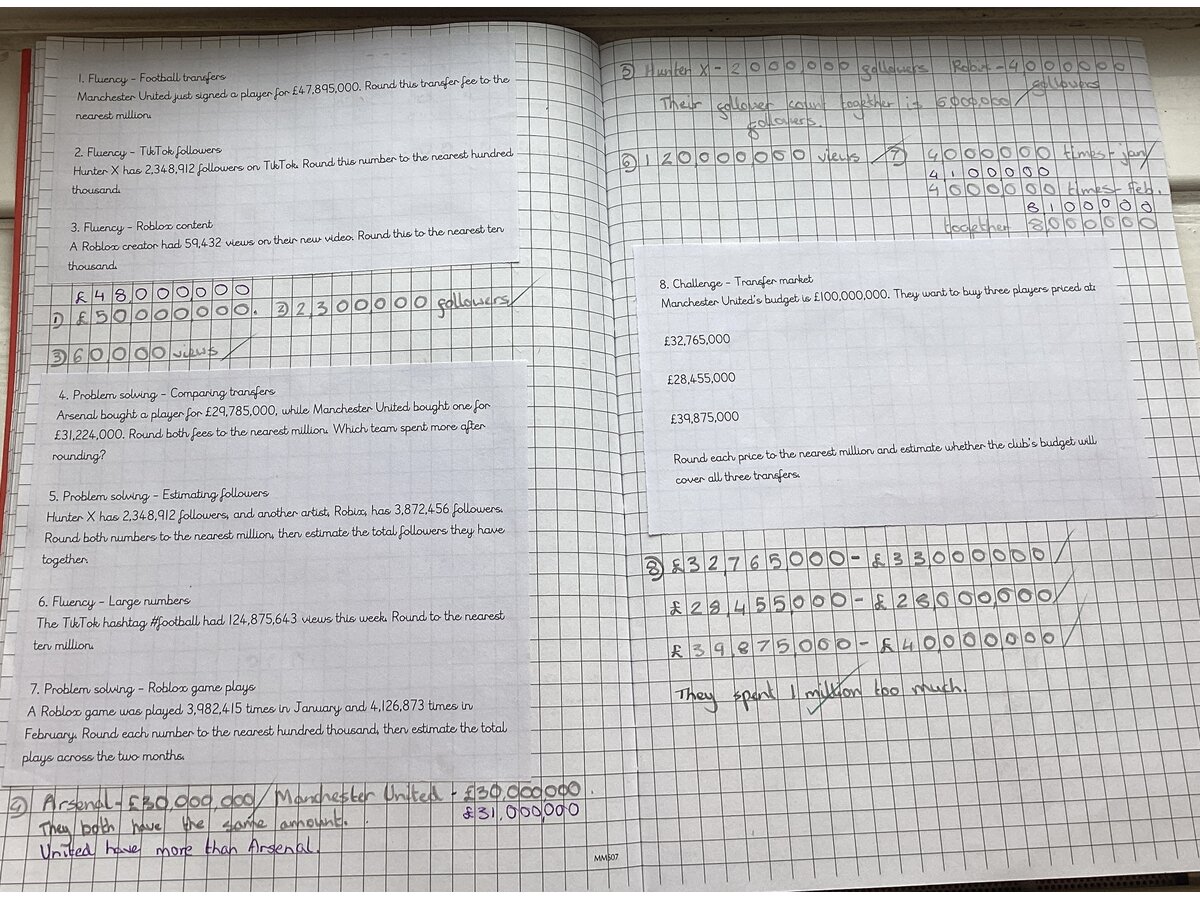 1. Fluency - Football transfers
Manchester United just signed a player for £47,895,000. Round this transfer fee to the
nearest million.
2. Fluency - TikTok followers
Hunter X has 2,348,912 followers on TikTok. Round this number to the nearest hundred
thousand.
3. Fluency - Roblox content
A Roblox creator had 59,432 views on their new video. Round this to the nearest ten
thousand.
£48000000
1) £50000000. 2) 2,300000 followers
3) 60000 views
4. Problem solving - Comparing transfers
Arsenal bought a player for £29,785,000, while Manchester United bought one for
£31,224,000. Round both fees to the nearest million. Which team spent more after
rounding?
5. Problem solving - Estimating followers
Hunter X has 2,348,912 followers, and another artist, Robix, has 3,872,456 followers.
Round both numbers to the nearest million, then estimate the total followers they have
together.
6. Fluency - Large numbers
The TikTok hashtag #football had 124,875,643 views this week. Round to the nearest
ten million.
7. Problem solving - Roblox game plays
A Roblox game was played 3,982,415 times in January and 4,126,873 times in
February. Round each number to the nearest hundred thousand, then estimate the total
plays across the two months.
4) Arsenal - £30,000,000 Manchester United - £30,000,000.
£31,000,000
They both have the same amount.
United have more than Arsenal.
MM507
5) Hunter X - 2000000 followers Robix - 4000000
followers
Their follower count together is 6000000
followers.
6) 120000000 views 7) 4000000 times - jan
4100000
4000000 times - feb.
8100000
together 8000000
8. Challenge - Transfer market
Manchester United's budget is £100,000,000. They want to buy three players priced at:
£32,765,000
£28,455,000
£39,875,000
Round each price to the nearest million and estimate whether the club's budget will
cover all three transfers.
8) £32,765,000 - £33000000
£28,455000 - £28000,000
£39,875000 - £40000000
They spent 1 million too much.